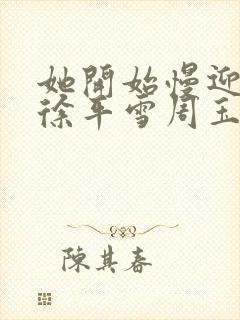 她開始慢迎
徐平雪周玉
陳其春